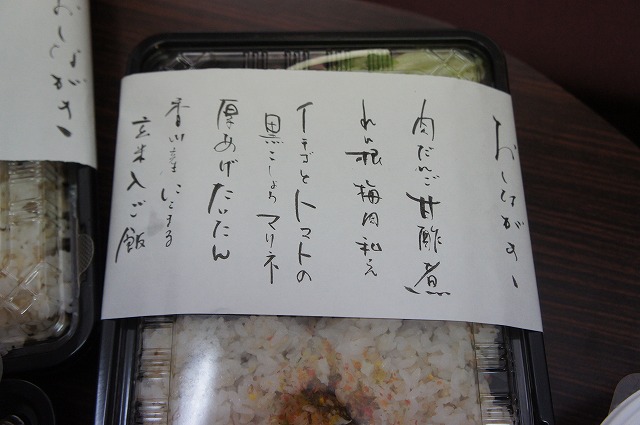 おしながき
肉だんご甘酢煮
れん根梅肉和え
イチゴとトマトの
黒こしょうマリネ
厚あげたいたん
香川産にこまる
玄米入ご飯
おしながき